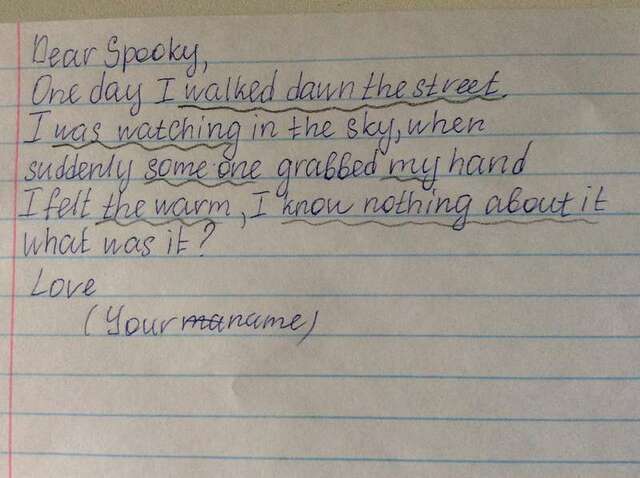 Dear Spooky,
One day I walked dawn the street.
I was watching in the sky, when
suddenly some one grabbed my hand
I felt the warm, I know nothing about it
what was it?
Love
(Your ma name)